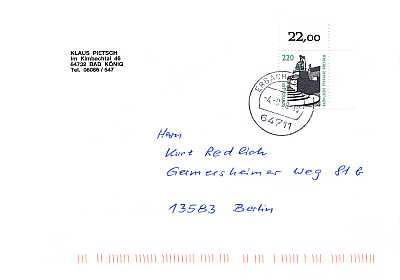 22,00
KLAUS PIETSCH
Im Kimbachtal 46
64732 BAD KÖNIG
Tel. 06066 / 547
220
ERBACH
64711
Herrn
Kurt Redlich
Germersheimer Weg 81 b
13583 Berlin